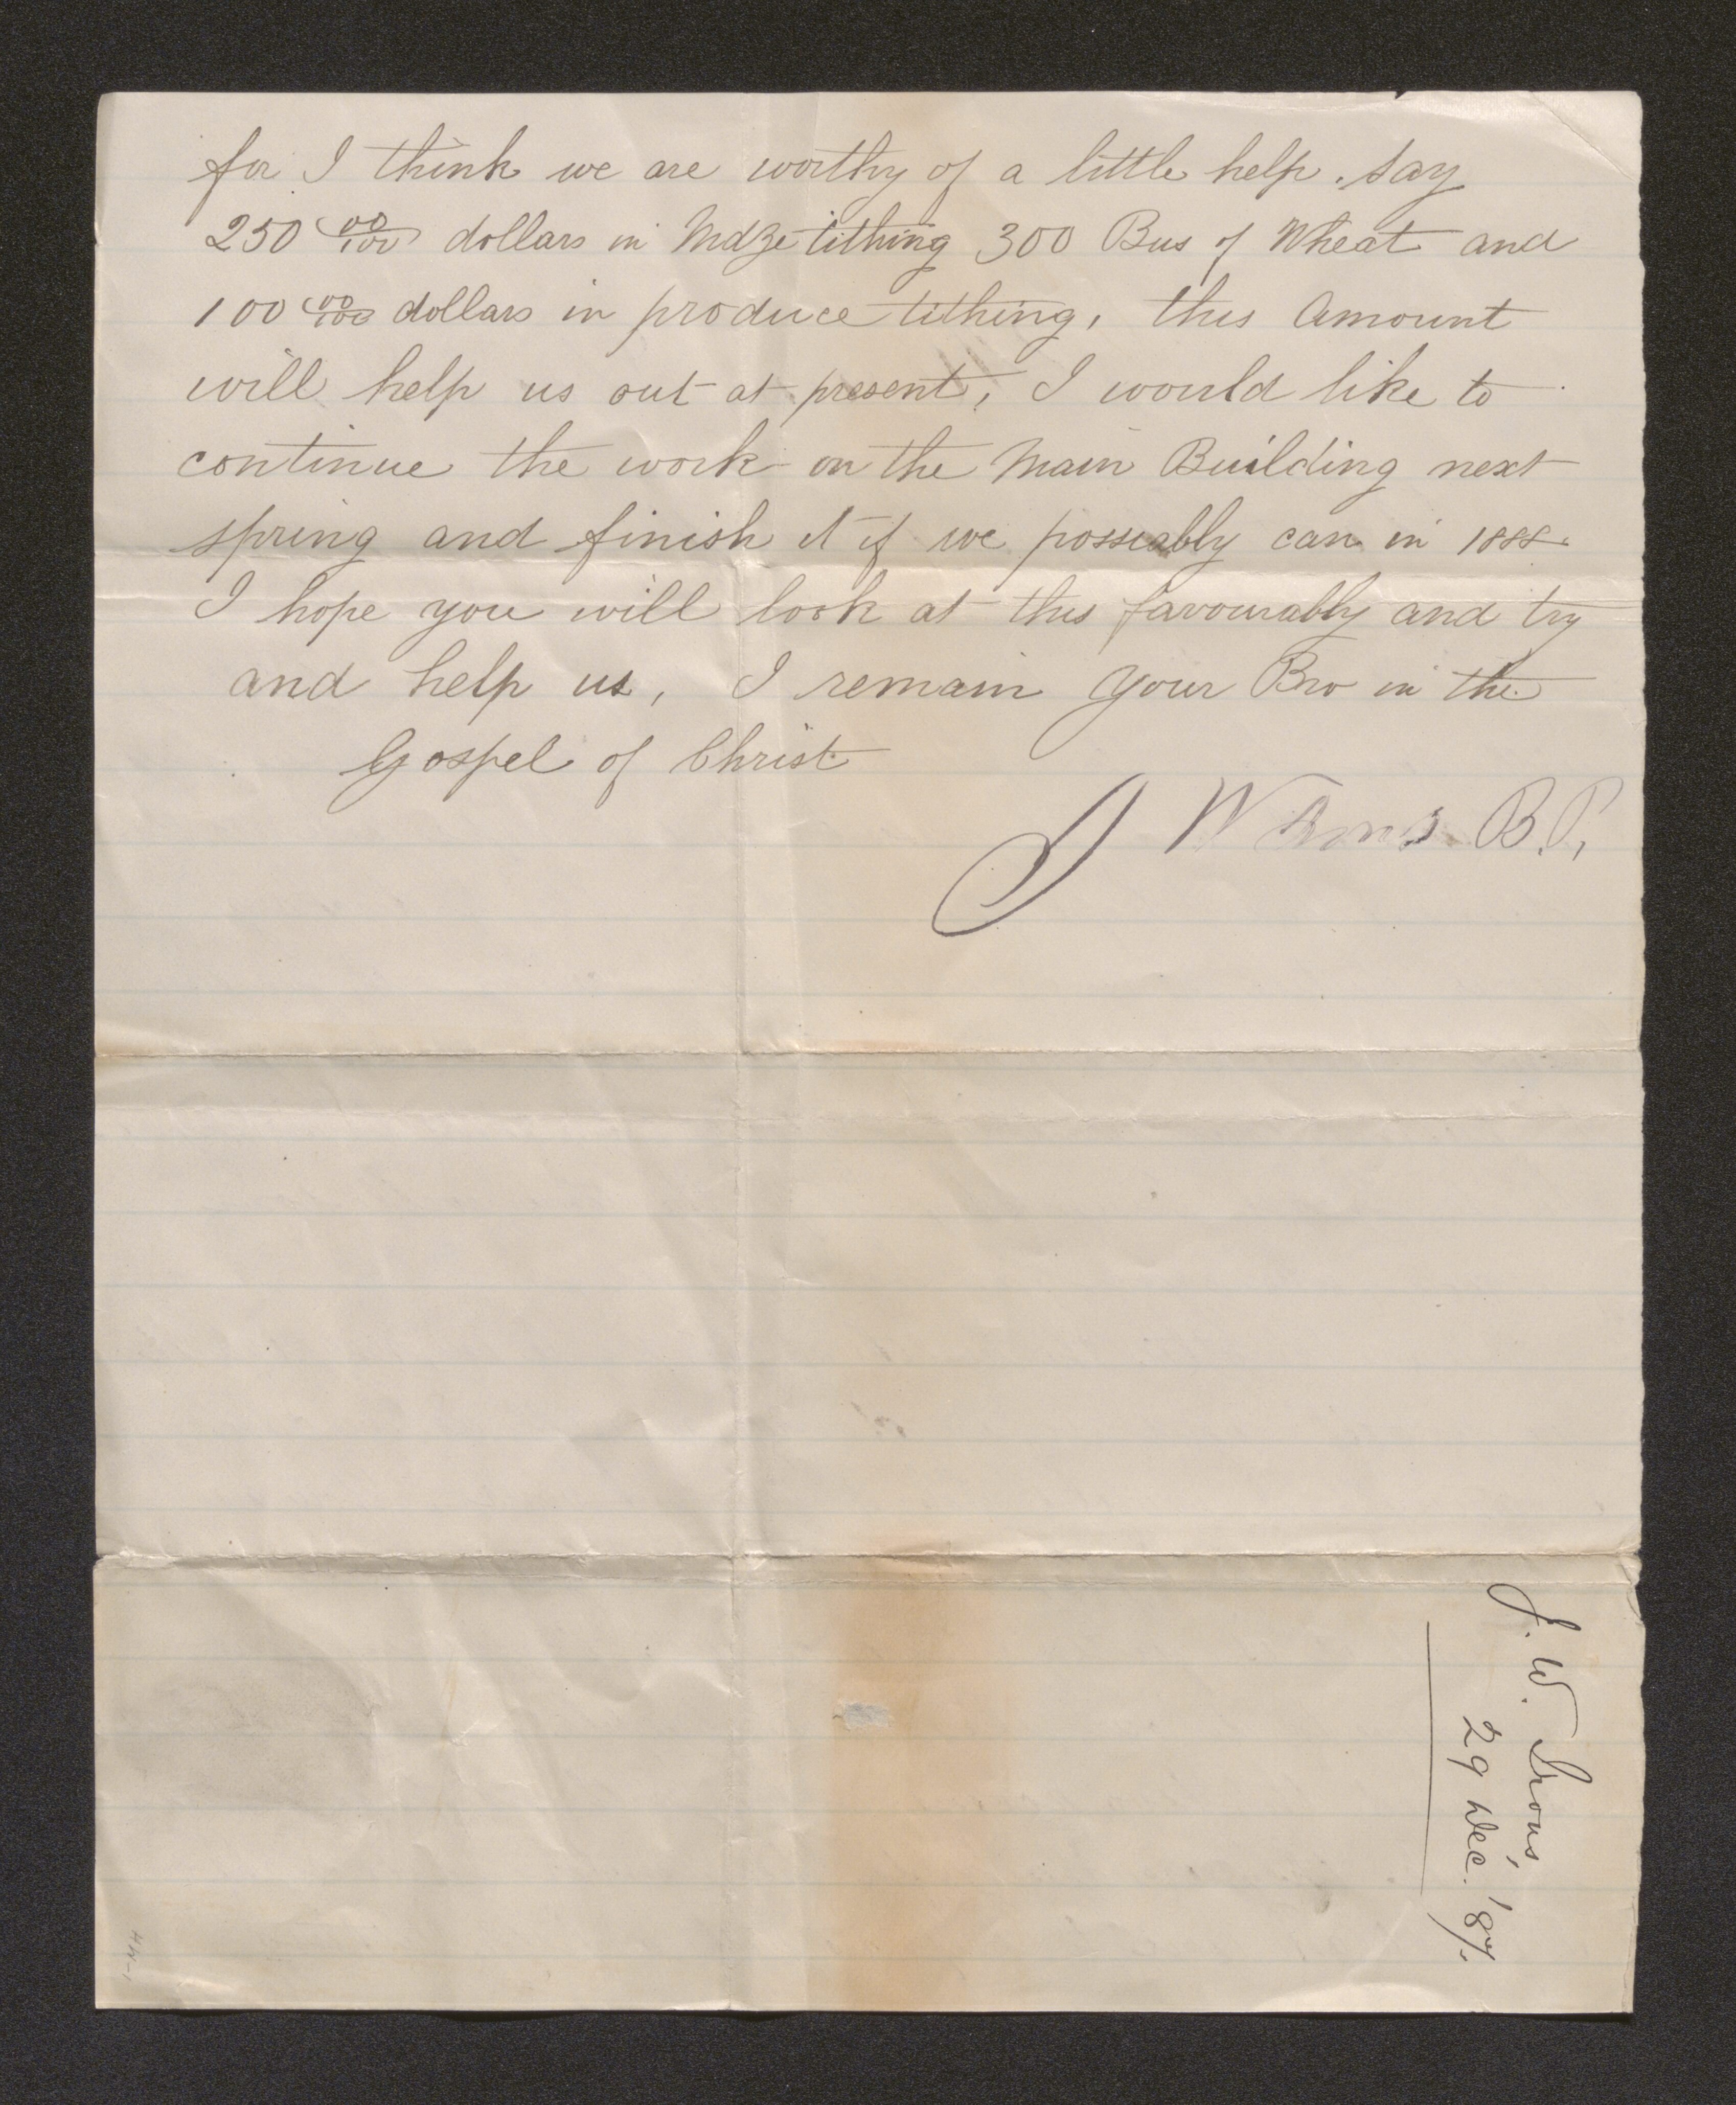 for I think we are worthy of a little help. Say
250 00/100 dollars in Mdze tithing 300 Bus of Wheat and
100 00/100 dollars in produce tithing, this Amount
will help us out at present, I would like to
continue the work on the Main Building next
spring and finish it if we possiably can in 1888.
I hope you will look at this favourably and try
and help us, I remain your Bro in the
Gospel of Christ
J W Irons B.P.
J. W. Irons,
29 Dec. '87.